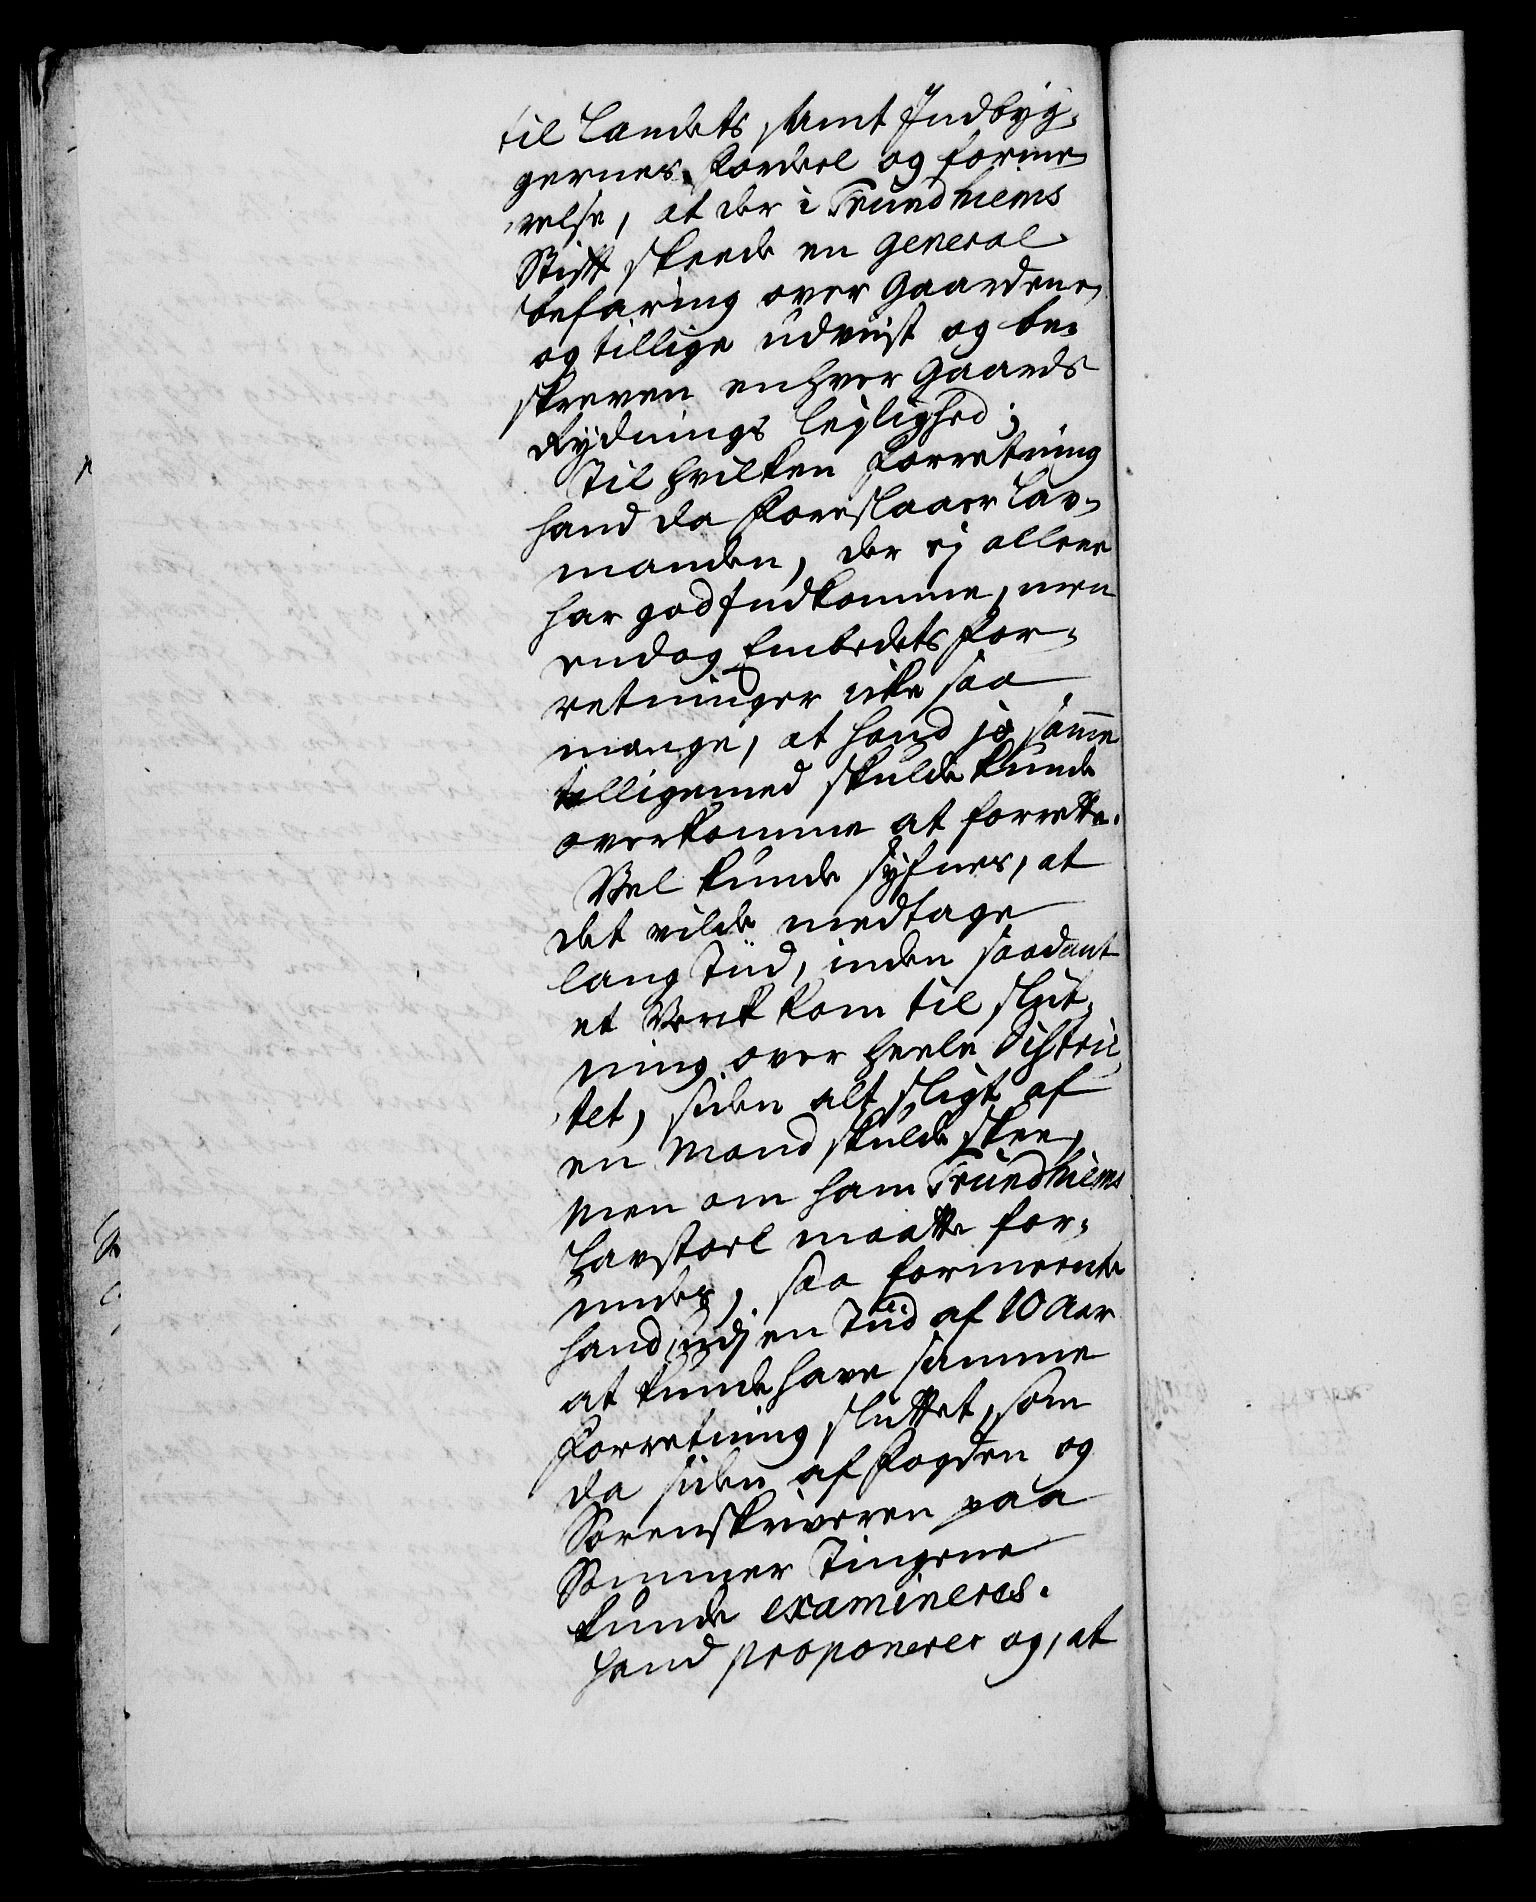 til Landets samt Indbyg-
gernes Fordeel og forme-
relse, at der i Trundhiems
Stift skeede en General
befaring over Gaardene,
og tillige udviist og be-
skreven enhver Gaards
Rydnings lejlighed;
Til hvilken Forretning
hand da Foreslaaer Lav-
manden, der ej alleene
har god Indkomme, men
endog Embedets For-
retninger icke saa
mange, at hand jo samme
tilligemed skulde kunde
overkomme at forrette.
Vel kunde syfnes, at
det vilde medtage
lang Tiid, inden saadant
et Verck kom til slut-
ning over heele Districk-
tet, siden alt sligt af
en Mand skulde skee,
Men om ham Trundhiems
Lavstoel maatte for-
undes, saa formeente
hand, udj en Tiid af 10 Aar
at kunde have samme
Forretning sluttet, som
da siden af Fogden og
Sorenskriveren paa
Sommer Tingene
kunde examineres.
Hand proponerer og, at